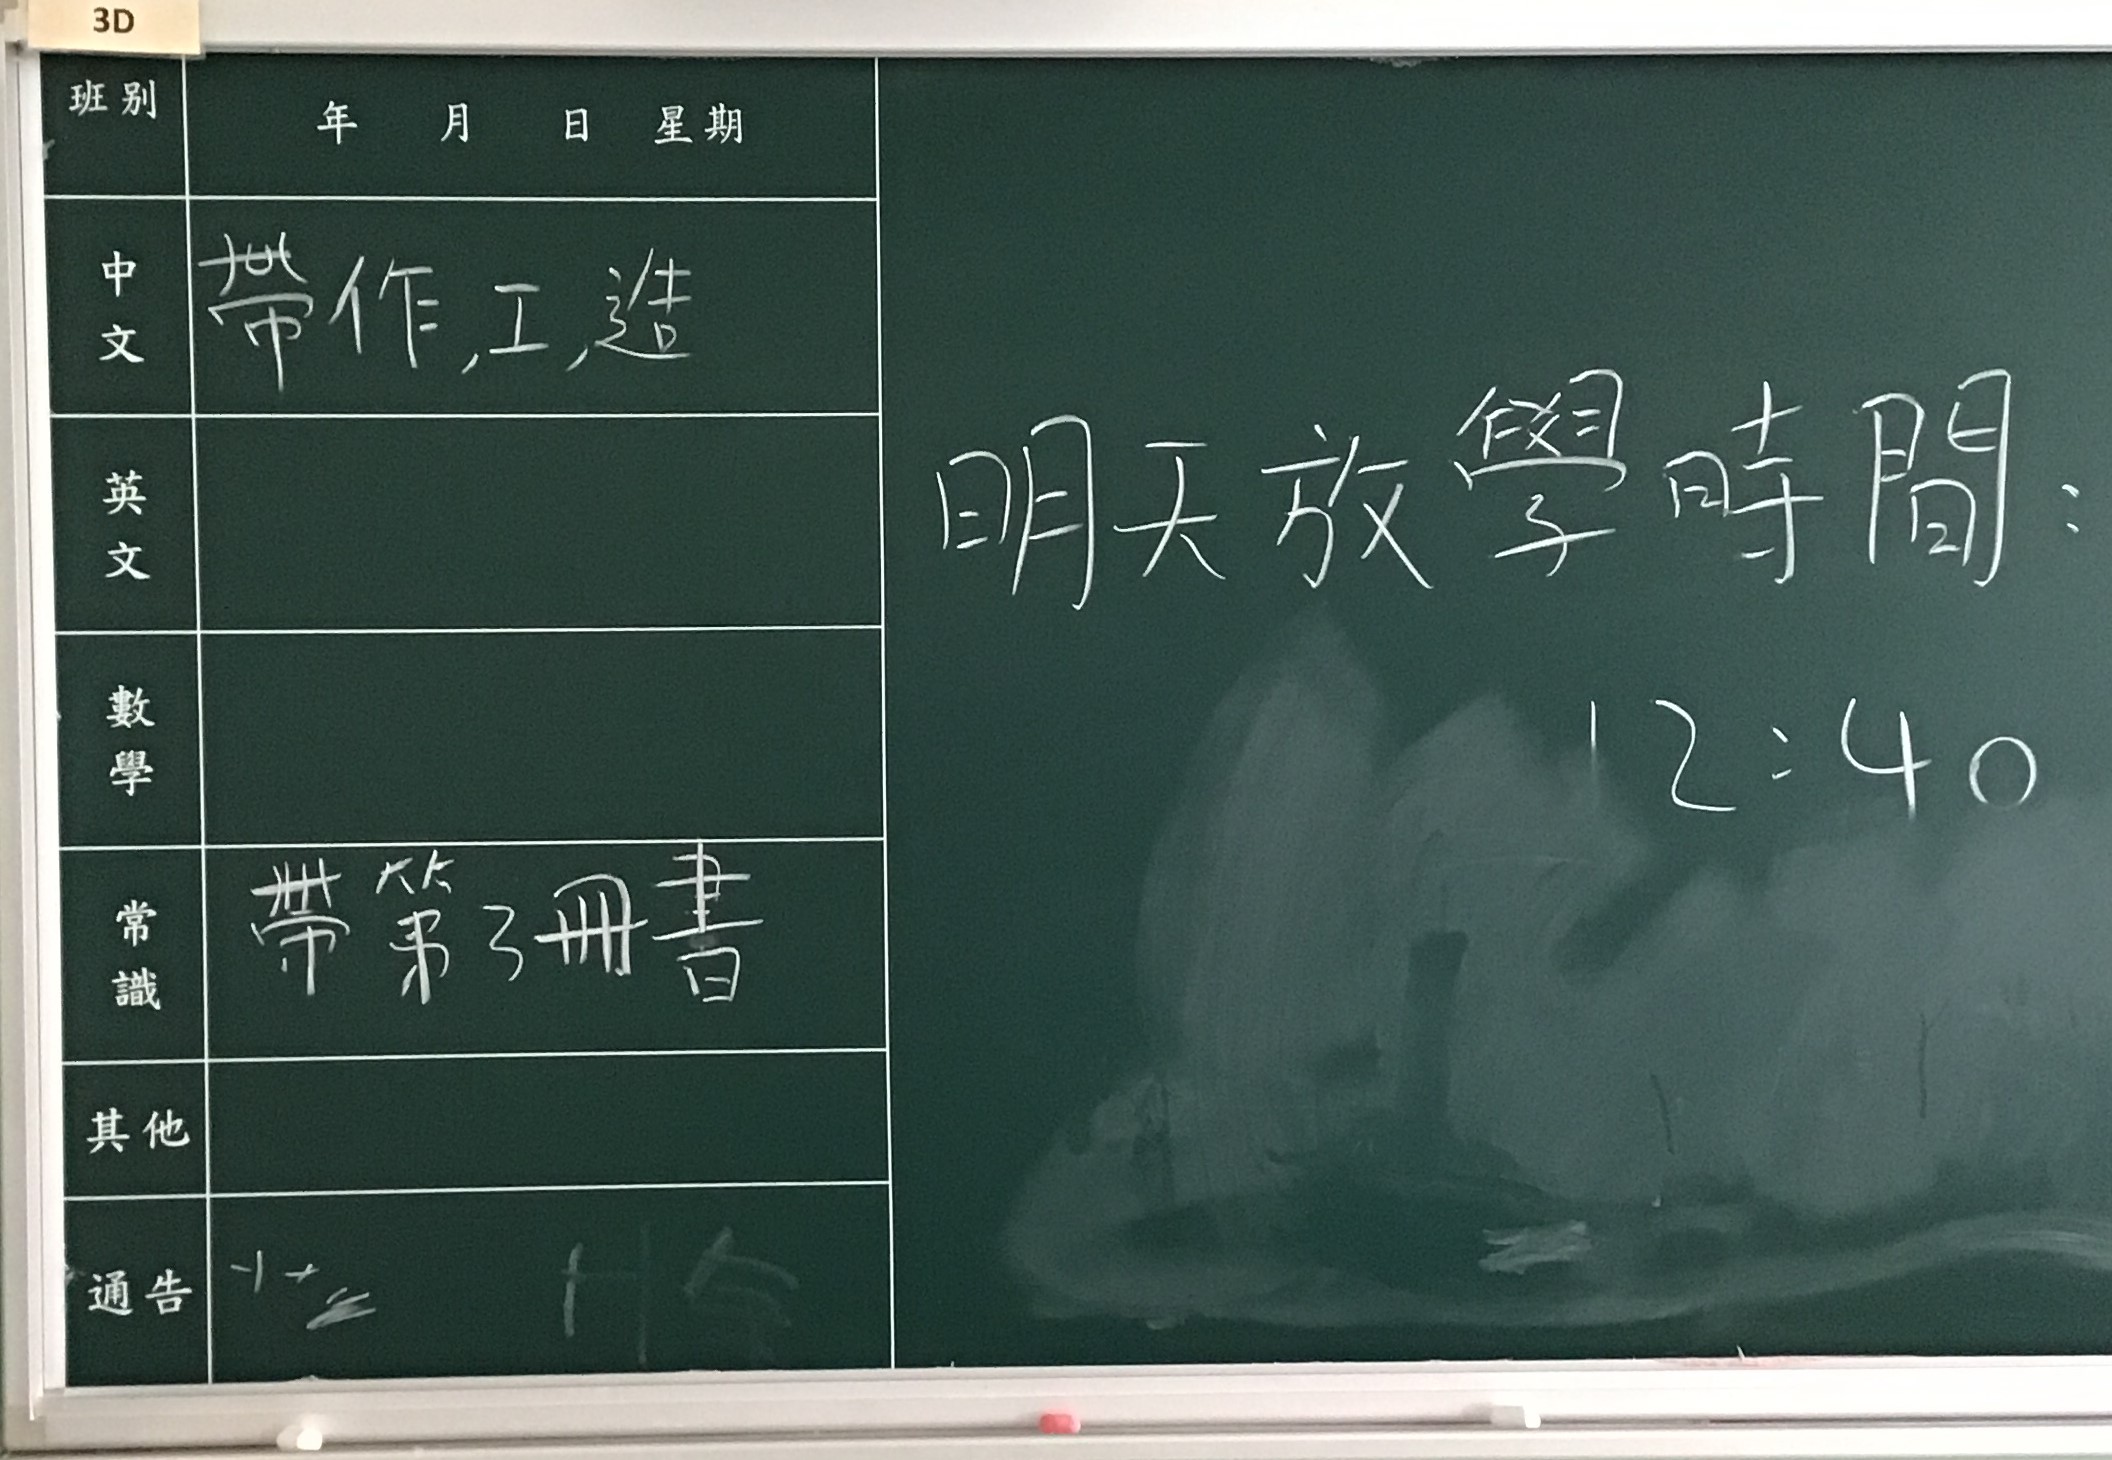 3D
班別
年 月 日 星期
中文
帶作,工,造
英文
數學
常識
帶第3冊書
其他
通告
明天放學時間:
12:40